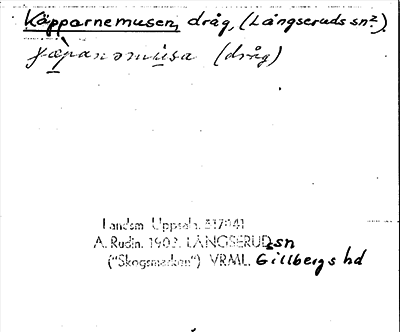 Käpparnemusen, dråg, (Långseruds sn?).
(dråg)
Landsm. Uppsala. 317041
A. Rudin. 1902. LÅNGSERUD sn
("Skogsmarken") VRML. Gillbergs hd